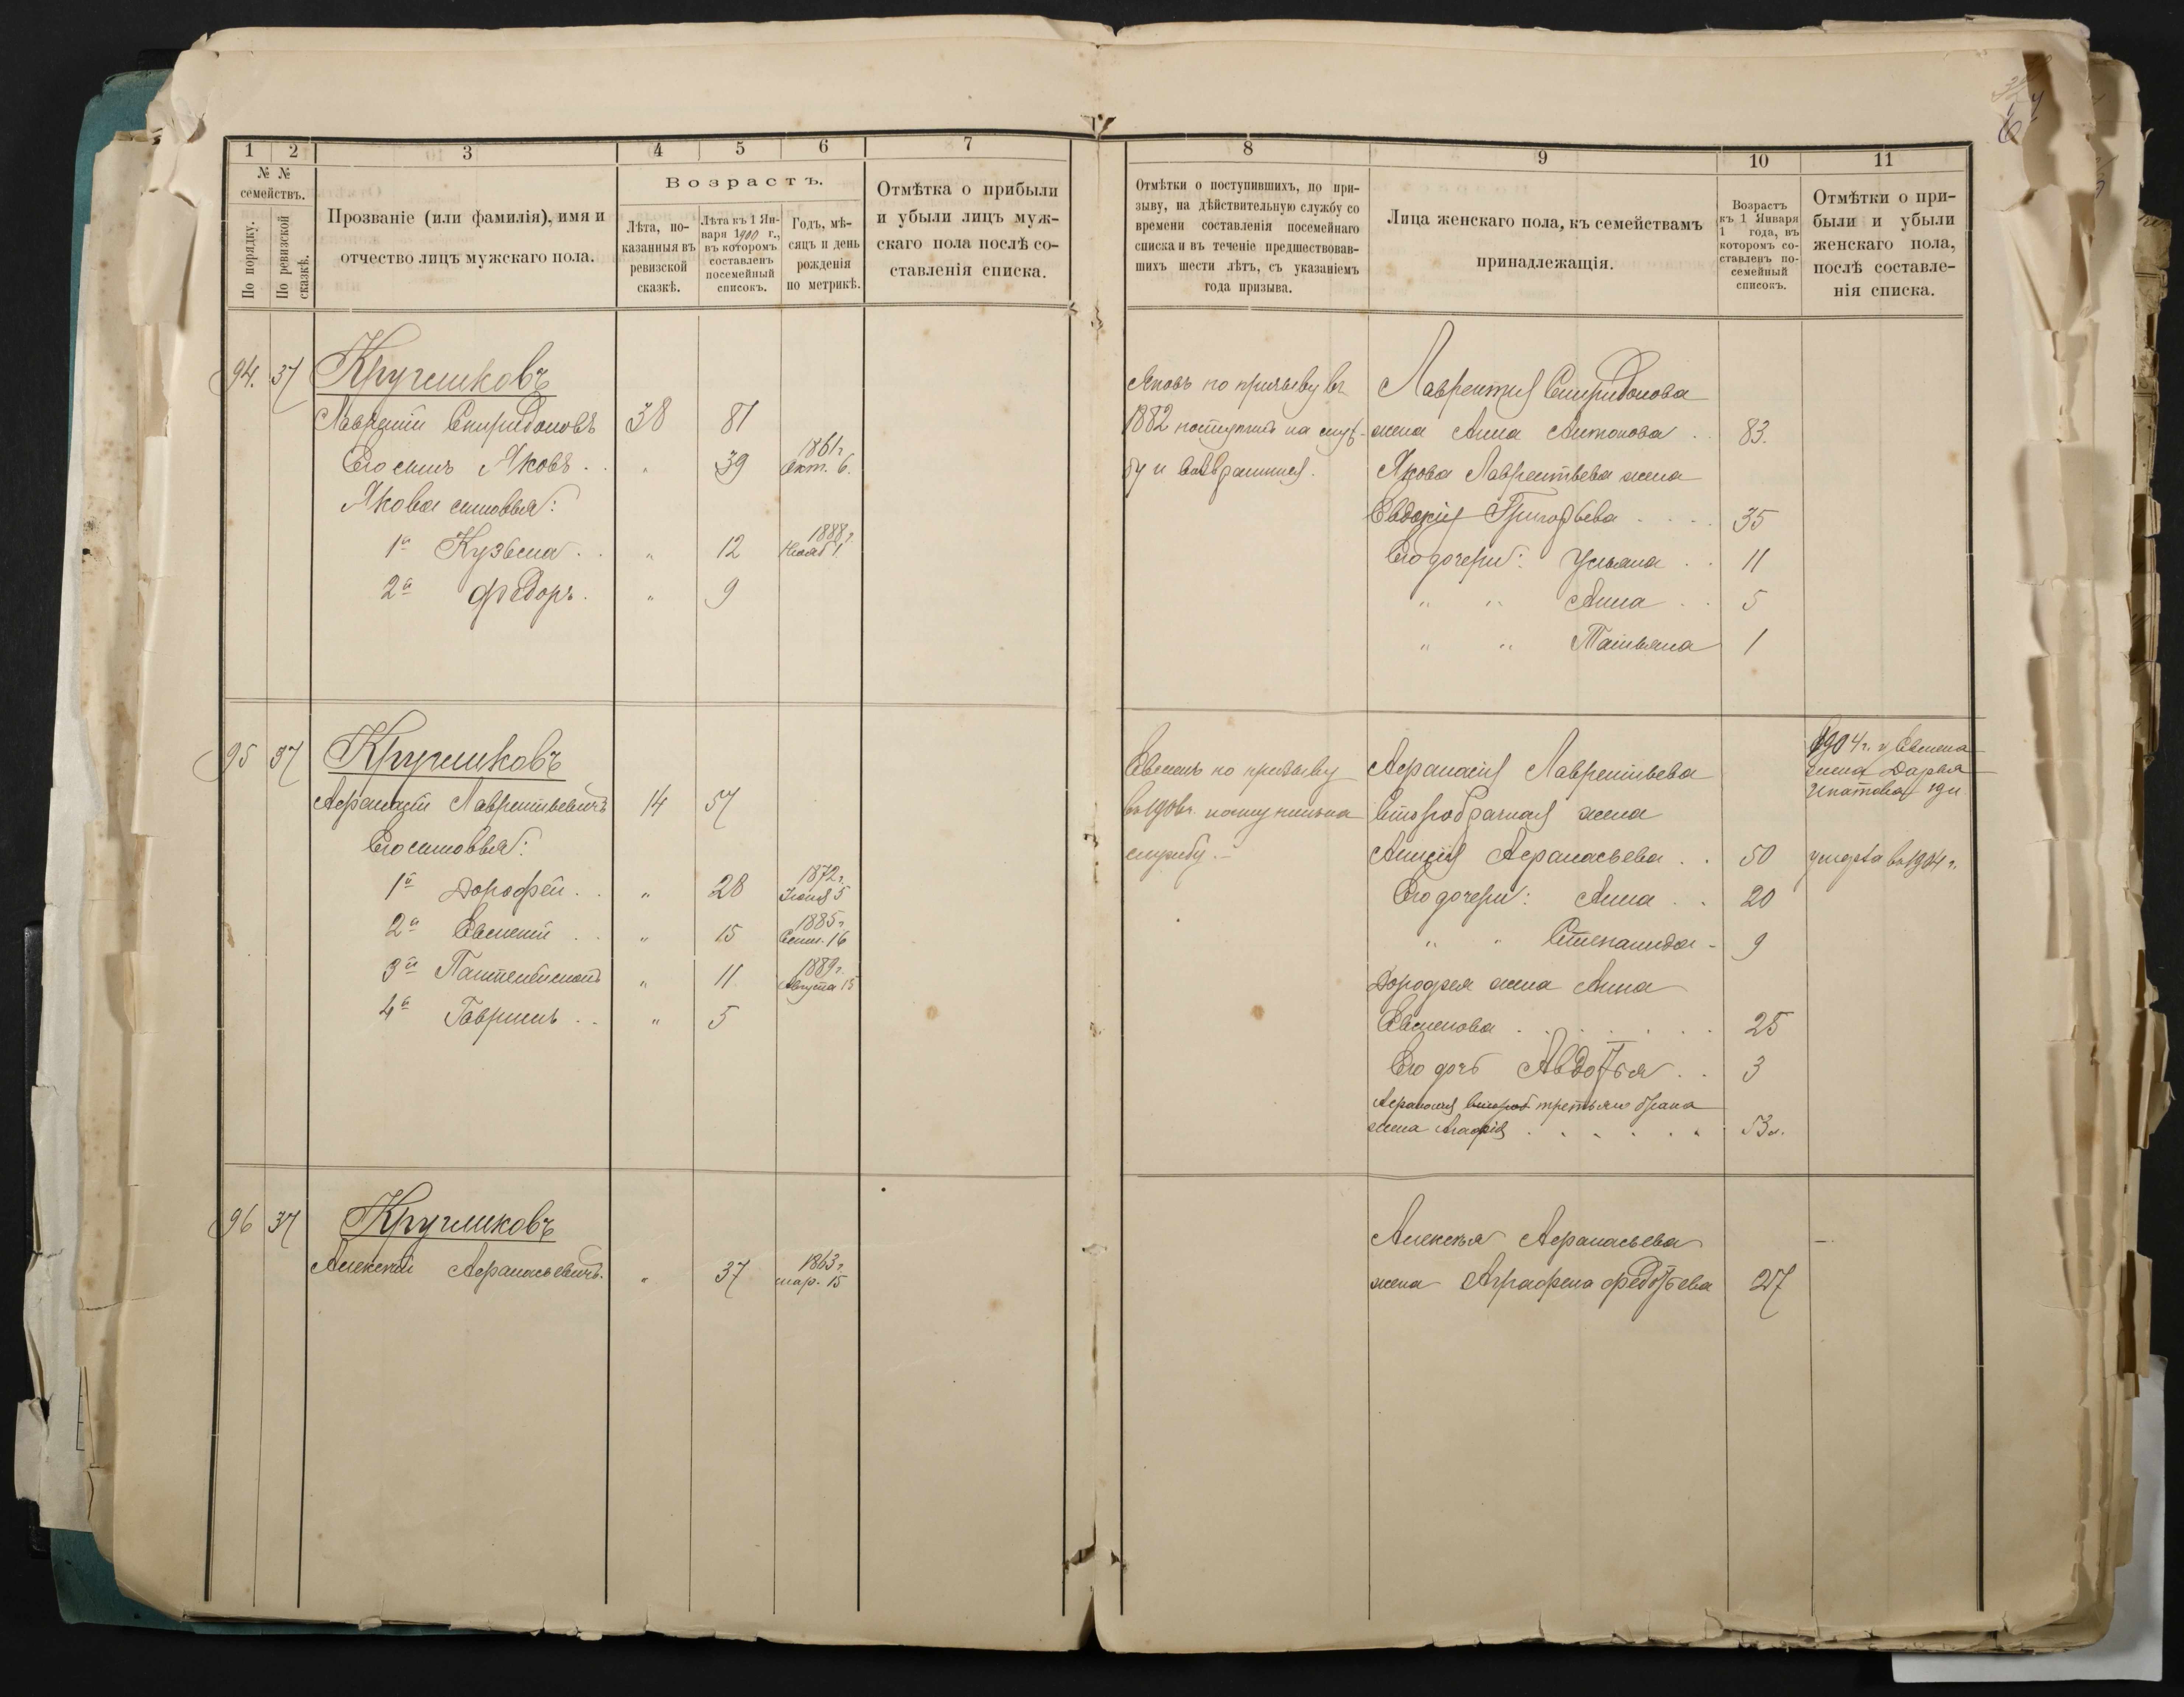 1 2 3 4 5 6 7
№ №
семействъ.
По порядку.
По ревизской сказкѣ.
Прозваніе (или фамилія), имя и
отчество лицъ мужскаго пола.
Возрастъ.
Лѣта, по-
казанныя въ
ревизской
сказкѣ.
Лѣта къ 1 Ян-
варя 1900 г.,
въ которомъ
составленъ
посемейный
списокъ.
Годъ, мѣ-
сяцъ и день
рожденія
по метрикѣ.
Отмѣтка о прибыли
и убыли лицъ муж-
скаго пола послѣ со-
ставленія списка.
94. 37 Кругликовъ
Лаврентій Спиридоновъ 38 81
Его сынъ Яковъ . . " 39 1861 г. Окт. 6.
Якова сыновья:
1й Кузьма . . " 12 1888 г. Нояб 1.
2й Ѳедоръ . " 9
95 37 Кругликовъ
Аѳанасій Лаврентьевичъ 14 57
Его сыновья:
1й Дороѳей . . " 28 1872 г. Іюня 5
2й Евсевій . . " 15 1885 г. Сент. 16
3й Пантелеимонъ " 11 1889 г. Августа 15
4й Гавріилъ . . " 5
96 37 Кругликовъ
Алексѣй Аѳанасьевичъ. " 37 1863 г. мар. 15
8 9 10 11
Отмѣтки о поступившихъ, по при-
зыву, на дѣйствительную службу со
времени составленія посемейнаго
списка и въ теченіе предшествовав-
шихъ шести лѣтъ, съ указаніемъ
года призыва.
Лица женскаго пола, къ семействамъ
принадлежащія.
Возрастъ
къ 1 Января
1 года, въ
которомъ со-
ставленъ по-
семейный
списокъ.
Отмѣтки о при-
были и убыли
женскаго пола,
послѣ составле-
нія списка.
Яковъ по призыву въ
1882 поступилъ на служ-
бу и возвратился.
Лаврентія Спиридонова
жена Анна Антонова . . 83.
Якова Лаврентьева жена
Евдокія Григорьева . . . . 35
Его дочери: Ульяна . . 11
" " Анна . . 5
" " Татьяна 1
по призыву
въ 190 г. поступилъ на
службу. –
Аѳанасія Лаврентьева
второбрачная жена
Анисія Аѳанасьева . . 50 умерла въ 1904 г.
Его дочери: Анна . . 20
" " Степанида - 9
Дороѳея жена Анна
Евсикова . . . . . . . 25
Его дочь Авдотья . . 3
Аѳанасія второб третьяго брака
жена Агафія . . . . . . 53 л.
1904 г. у
жена Дарья
Игнатова 19 л
Алексѣя Аѳанасьева –
жена Аграфена Ѳедотьева 27